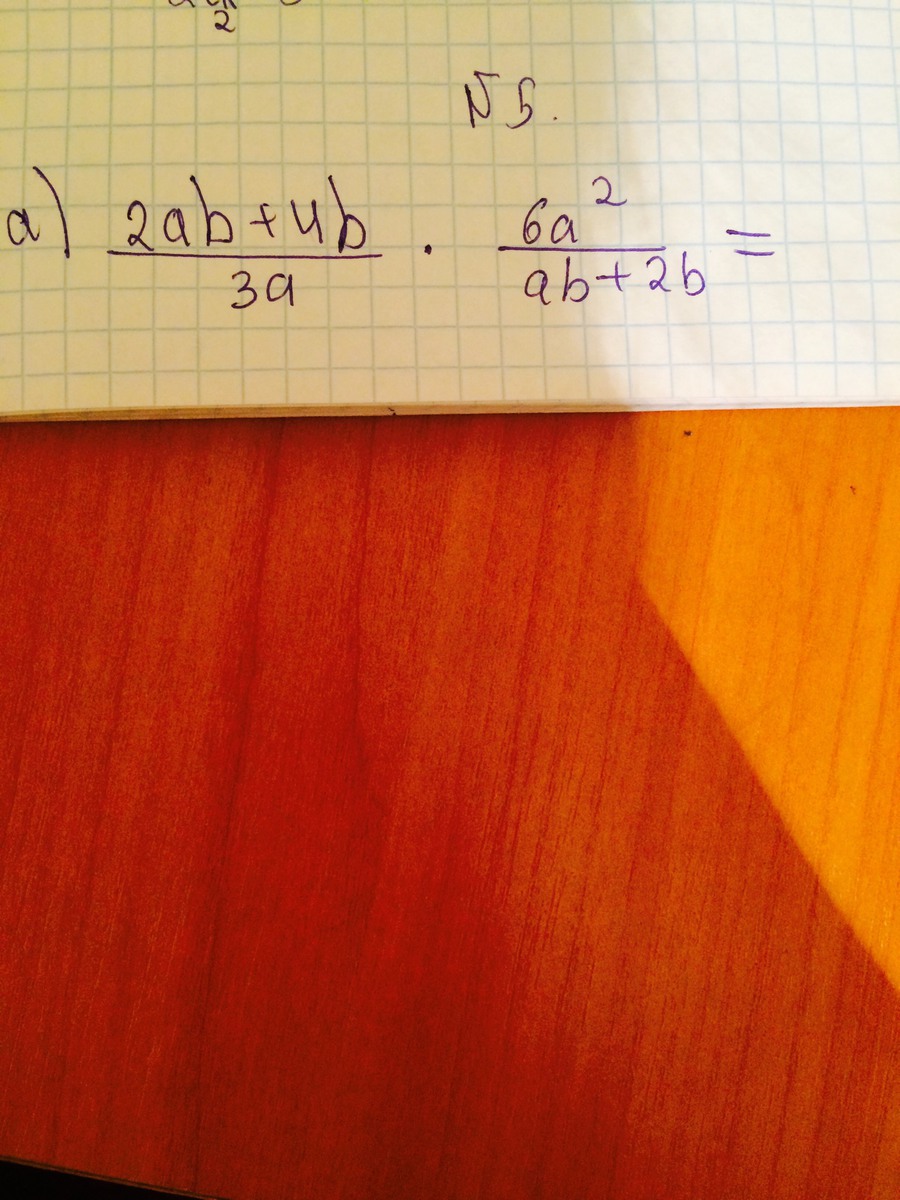 2
N 5.
a) \frac{2ab+4b}{3a} \cdot \frac{6a^2}{ab+2b} =